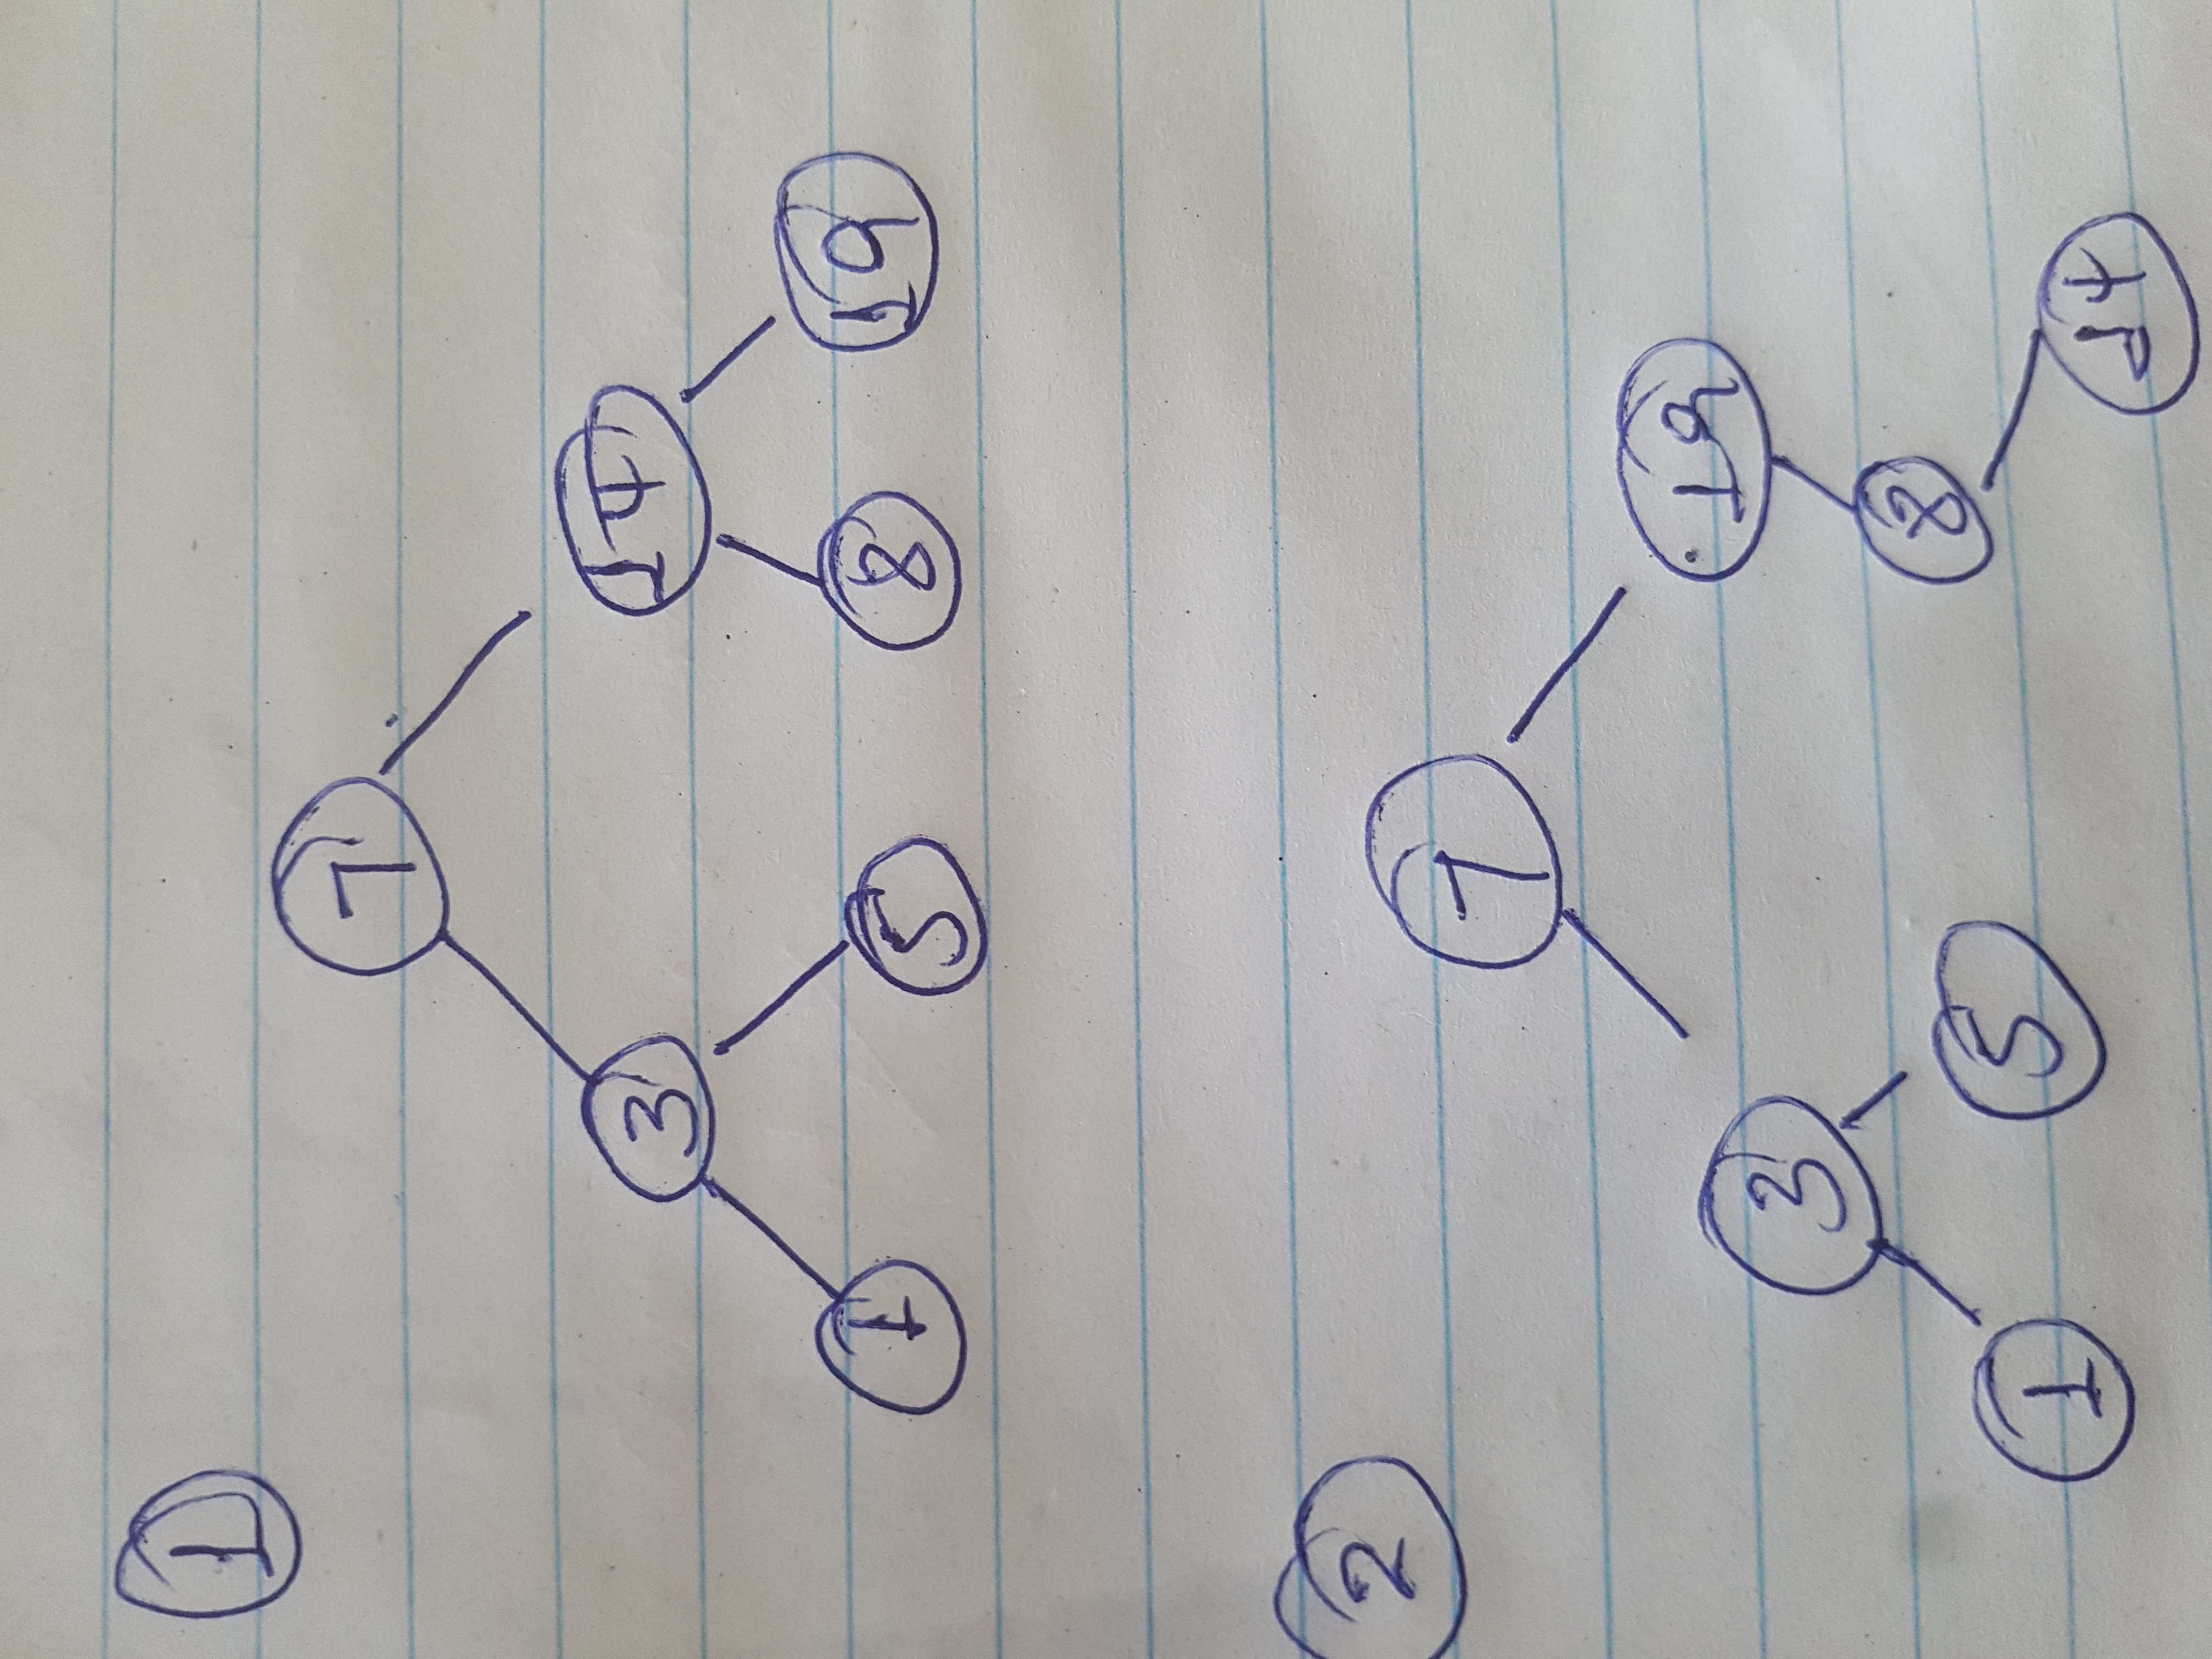 1
7
3 14
1 5 8 19
2
7
3 19
1 5 8
14